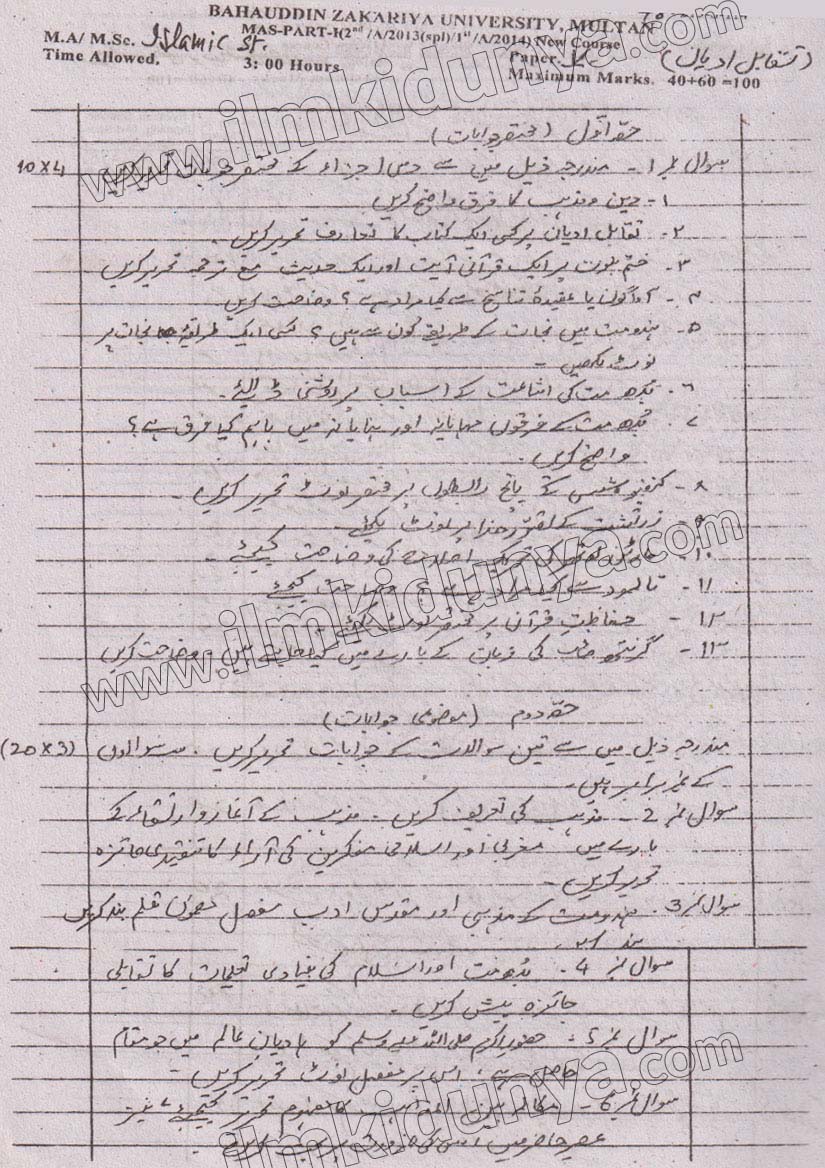 BAHAUDDIN ZAKARIYA UNIVERSITY, MULTAN
MAS-PART-I(2nd /A/2013(spl)/1st /A/2014) New Course
M.A/ M.Sc. Islamic St. Paper. V (تقابل ادیان)
Time Allowed. 3: 00 Hours Maximum Marks. 40+60 =100
حصہ اوّل (مختصر جوابات)
سوال نمبر 1- مندرجہ ذیل میں سے دس اجزاء کے مختصر جوابات 10X4
۱- دین و مذہب کا فرق واضح کریں
۲- تقابل ادیان پر کسی ایک کتاب کا تعارف تحریر کریں۔
۳- ختم نبوت پر ایک قرآنی آیت اور ایک حدیث مع ترجمہ تحریر کریں
۴- آواگون یا عقیدۂ تناسخ سے کیا مراد ہے؟ وضاحت کریں۔
۵- ہندومت میں نجات کے طریقے کون سے ہیں؟ کسی ایک طریقۂ نجات پر
نوٹ لکھیں۔
۶- بدھ مت کی اشاعت کے اسباب پر روشنی ڈالیے۔
۷- بُدھ مت کے فرقوں مہایانہ اور ہنایانہ میں باہم کیا فرق ہے؟
واضح کریں۔
۸- کنفیوشس کے پانچ رابطوں پر مختصر نوٹ تحریر کریں۔
۹- زرتشت کے تصوّر خدا پر نوٹ لکھئے۔
۱۰- مارٹن لوتھر کی اصلاح کی وضاحت کیجیئے۔
۱۱- تالمود سے کیا مراد ہے؟ وضاحت کیجئے
۱۲- حفاظتِ قرآنی پر مختصر نوٹ لکھئے
۱۳- گرنتھ صاحب کی زبان کے بارے میں وضاحت کریں
حصہ دوم (موضوعی جوابات)
مندرجہ ذیل میں سے تین سوالات کے جوابات تحریر کریں۔ سب سوالوں (20X3)
کے نمبر برابر ہیں۔
سوال نمبر 2- مذہب کی تعریف کریں۔ مذہب کے آغاز و ارتقاء کے
بارے میں مغربی اور اسلامی مفکرین کی آراء کا تنقیدی جائزہ
تحریر کریں۔
سوال نمبر 3. ہندومت کے مذہبی اور مقدس ادب مفصل مضمون قلم بند کریں
سوال نمبر 4- بدھ مت اور اسلام کی بنیادی تعلیمات کا تقابلی
جائزہ پیش کریں۔
سوال نمبر 5- حضور اکرم صلی اللہ علیہ وسلم کو ہادیان عالم میں جو مقام
حاصل ہے، اس پر مفصل نوٹ تحریر کریں۔
سوال نمبر 6- مکالمہ بین المذاہب کا مفہوم تحریر کیجئے، نیز
عصر حاضر میں اس کی
www.ilmkidunya.com
www.ilmkidunya.com
www.ilmkidunya.com
ilmkidunya.com